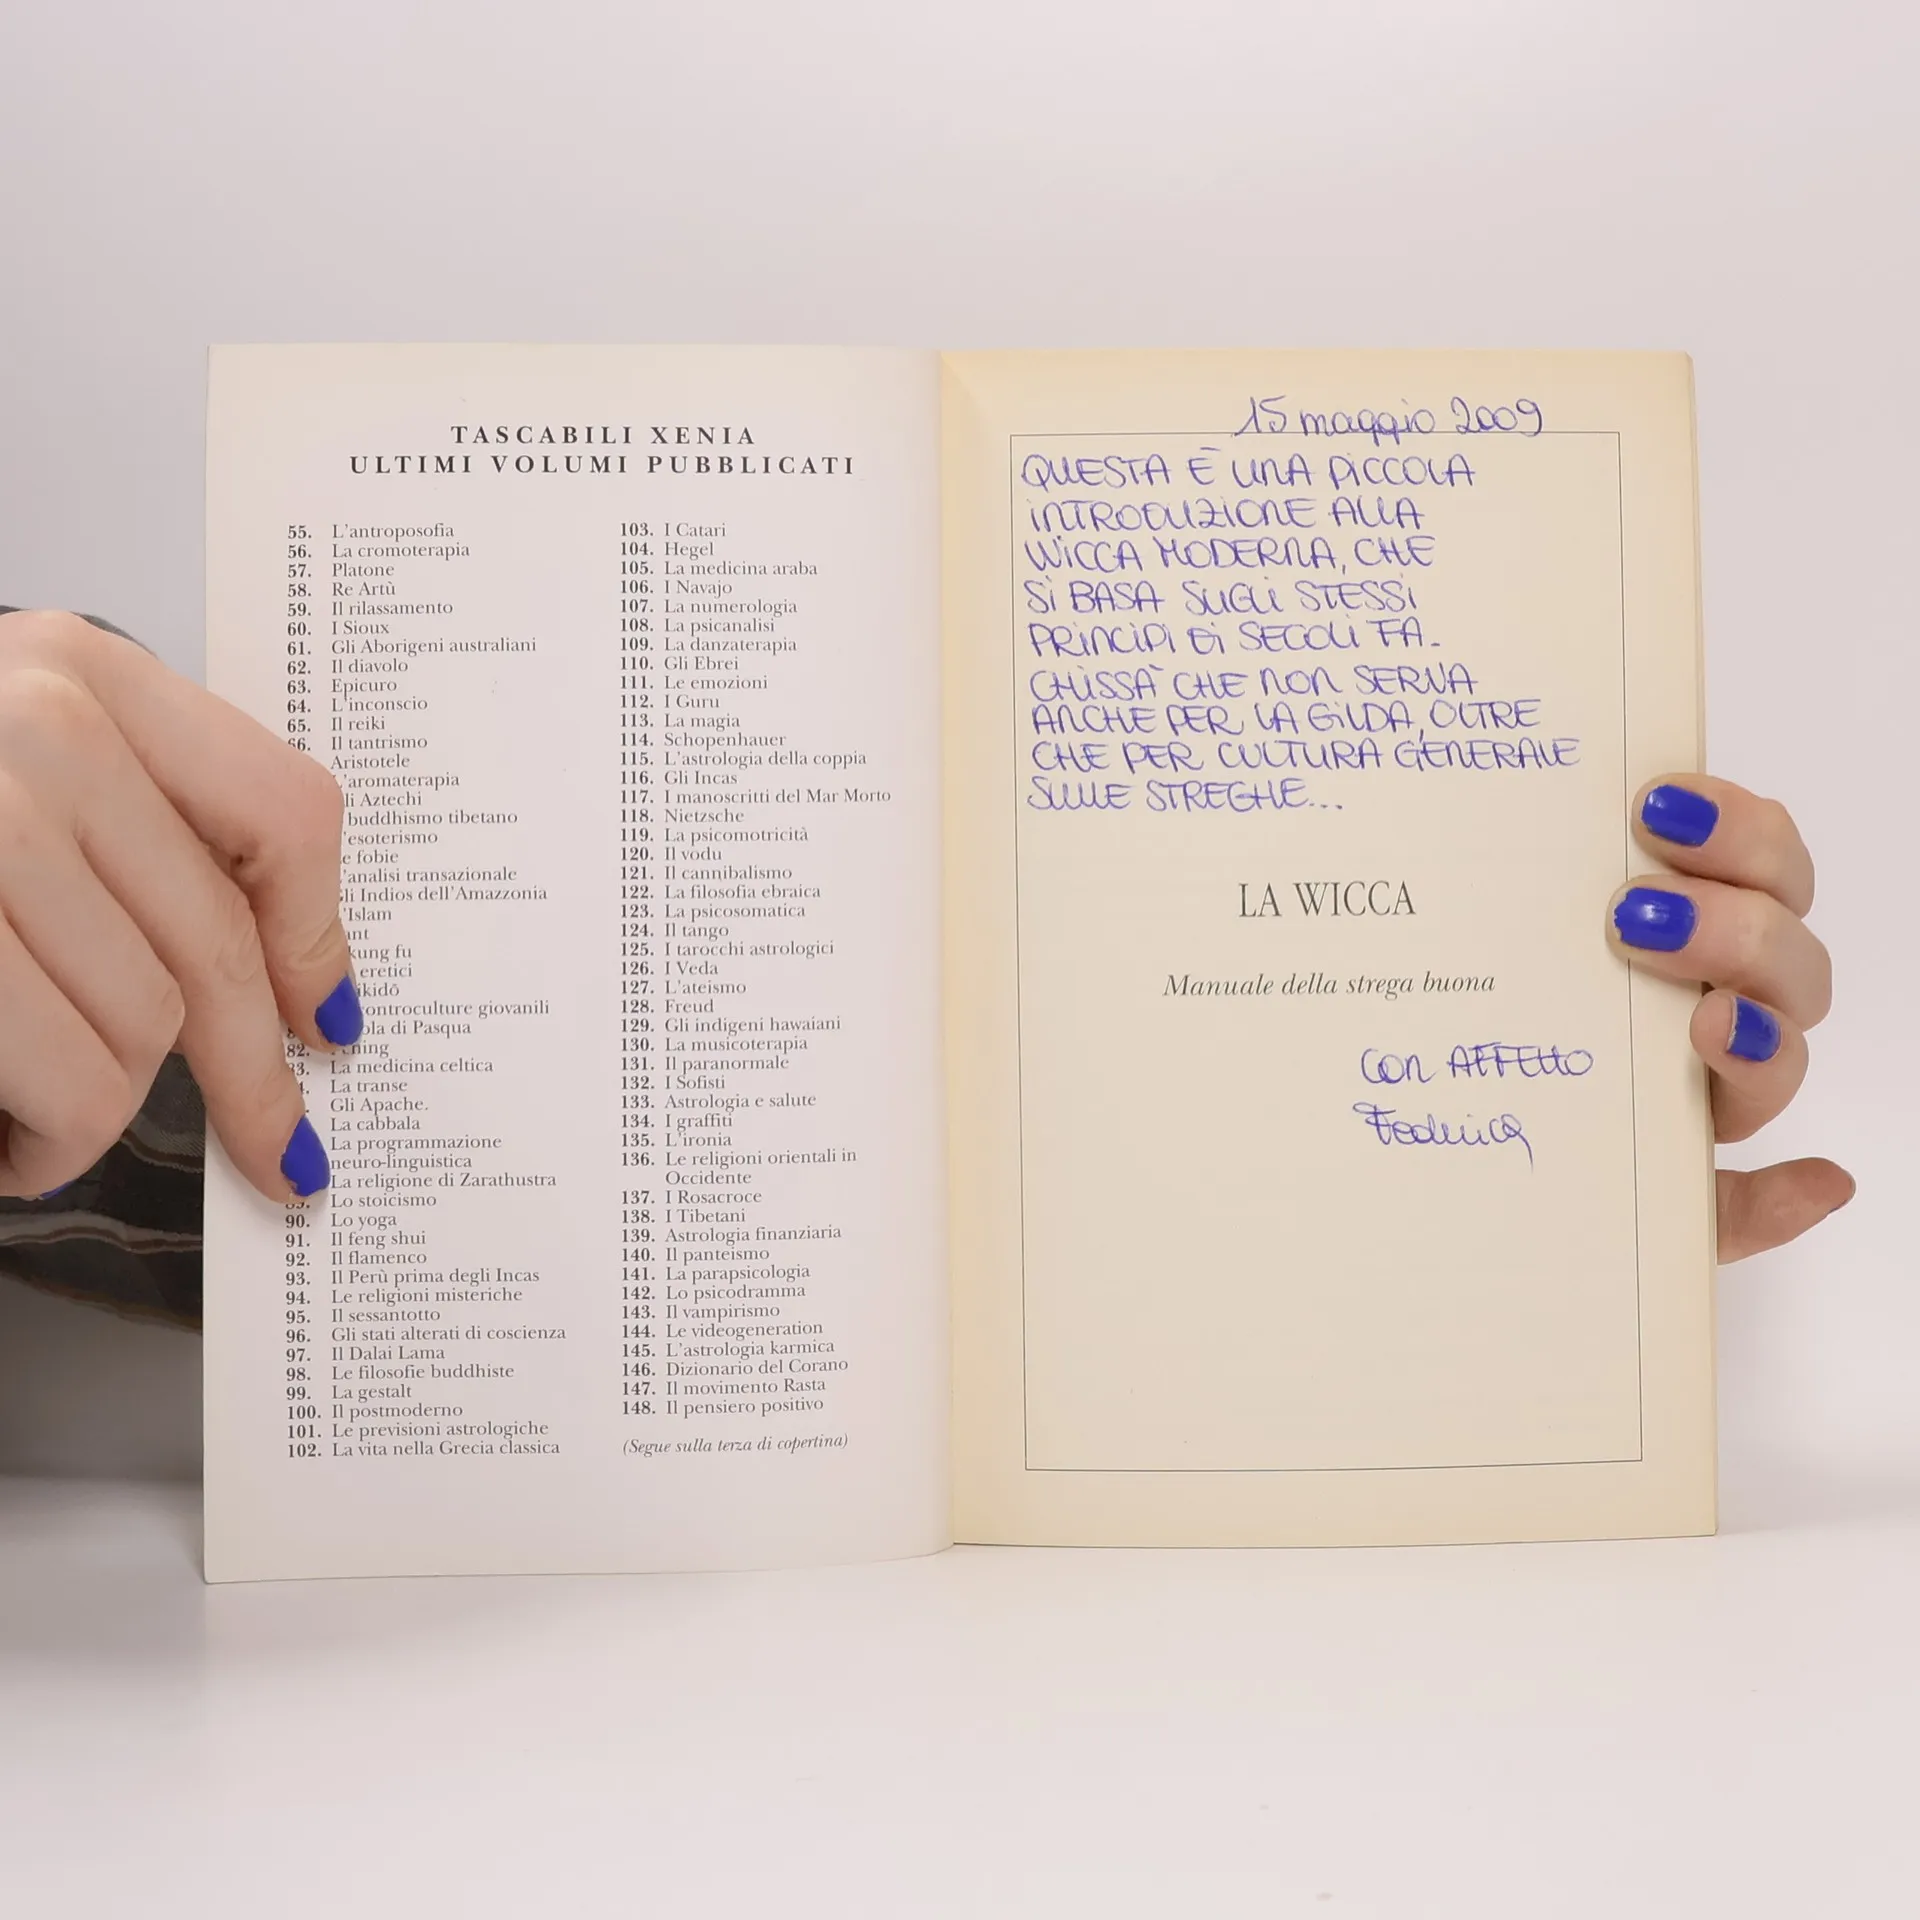 TASCABILI XENIA
ULTIMI VOLUMI PUBBLICATI
55. L'antroposofia
56. La cromoterapia
57. Platone
58. Re Artù
59. Il rilassamento
60. I Sioux
61. Gli Aborigeni australiani
62. Il diavolo
63. Epicuro
64. L'inconscio
65. Il reiki
66. Il tantrismo
Aristotele
'aromaterapia
li Aztechi
buddhismo tibetano
'esoterismo
e fobie
'analisi transazionale
li Indios dell'Amazzonia
'Islam
ant
kung fu
eretici
ikidō
controculture giovanili
ola di Pasqua
82. ching
83. La medicina celtica
La transe
Gli Apache.
La cabbala
La programmazione
neuro-linguistica
La religione di Zarathustra
89. Lo stoicismo
90. Lo yoga
91. Il feng shui
92. Il flamenco
93. Il Perù prima degli Incas
94. Le religioni misteriche
95. Il sessantotto
96. Gli stati alterati di coscienza
97. Il Dalai Lama
98. Le filosofie buddhiste
99. La gestalt
100. Il postmoderno
101. Le previsioni astrologiche
102. La vita nella Grecia classica
103. I Catari
104. Hegel
105. La medicina araba
106. I Navajo
107. La numerologia
108. La psicanalisi
109. La danzaterapia
110. Gli Ebrei
111. Le emozioni
112. I Guru
113. La magia
114. Schopenhauer
115. L'astrologia della coppia
116. Gli Incas
117. I manoscritti del Mar Morto
118. Nietzsche
119. La psicomotricità
120. Il vodu
121. Il cannibalismo
122. La filosofia ebraica
123. La psicosomatica
124. Il tango
125. I tarocchi astrologici
126. I Veda
127. L'ateismo
128. Freud
129. Gli indigeni hawaiani
130. La musicoterapia
131. Il paranormale
132. I Sofisti
133. Astrologia e salute
134. I graffiti
135. L'ironia
136. Le religioni orientali in
Occidente
137. I Rosacroce
138. I Tibetani
139. Astrologia finanziaria
140. Il panteismo
141. La parapsicologia
142. Lo psicodramma
143. Il vampirismo
144. Le videogeneration
145. L'astrologia karmica
146. Dizionario del Corano
147. Il movimento Rasta
148. Il pensiero positivo
(Segue sulla terza di copertina)
15 maggio 2009
QUESTA È UNA PICCOLA
INTRODUZIONE ALLA
WICCA MODERNA, CHE
SI BASA SUGLI STESSI
PRINCIPI DI SECOLI FA.
CHISSÀ CHE NON SERVA
ANCHE PER LA GILDA, OLTRE
CHE PER CULTURA GENERALE
SULLE STREGHE...
LA WICCA
Manuale della strega buona
CON AFFETTO
Federica